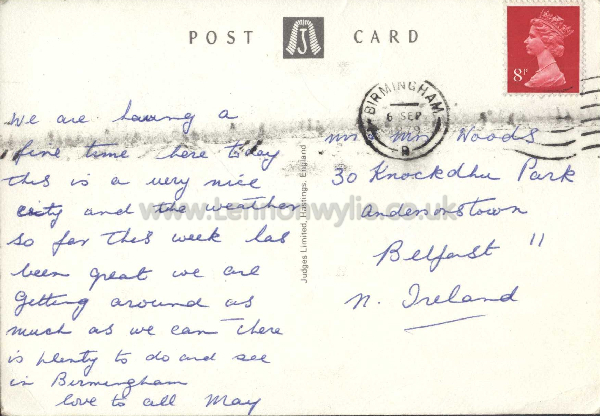 POST CARD
8P
BIRMINGHAM
6 SEP
We are having a
fine time here today
this is a very nice
city and the weather
so far this week has
been great we are
getting around as
much as we can there
is plenty to do and see
in Birmingham
love to all May
Judges Limited, Hastings, England
mr mrs Woods
30 Knockdhu Park
andersonstown
Belfast 11
N. Ireland
www.Lennonwylie.co.uk